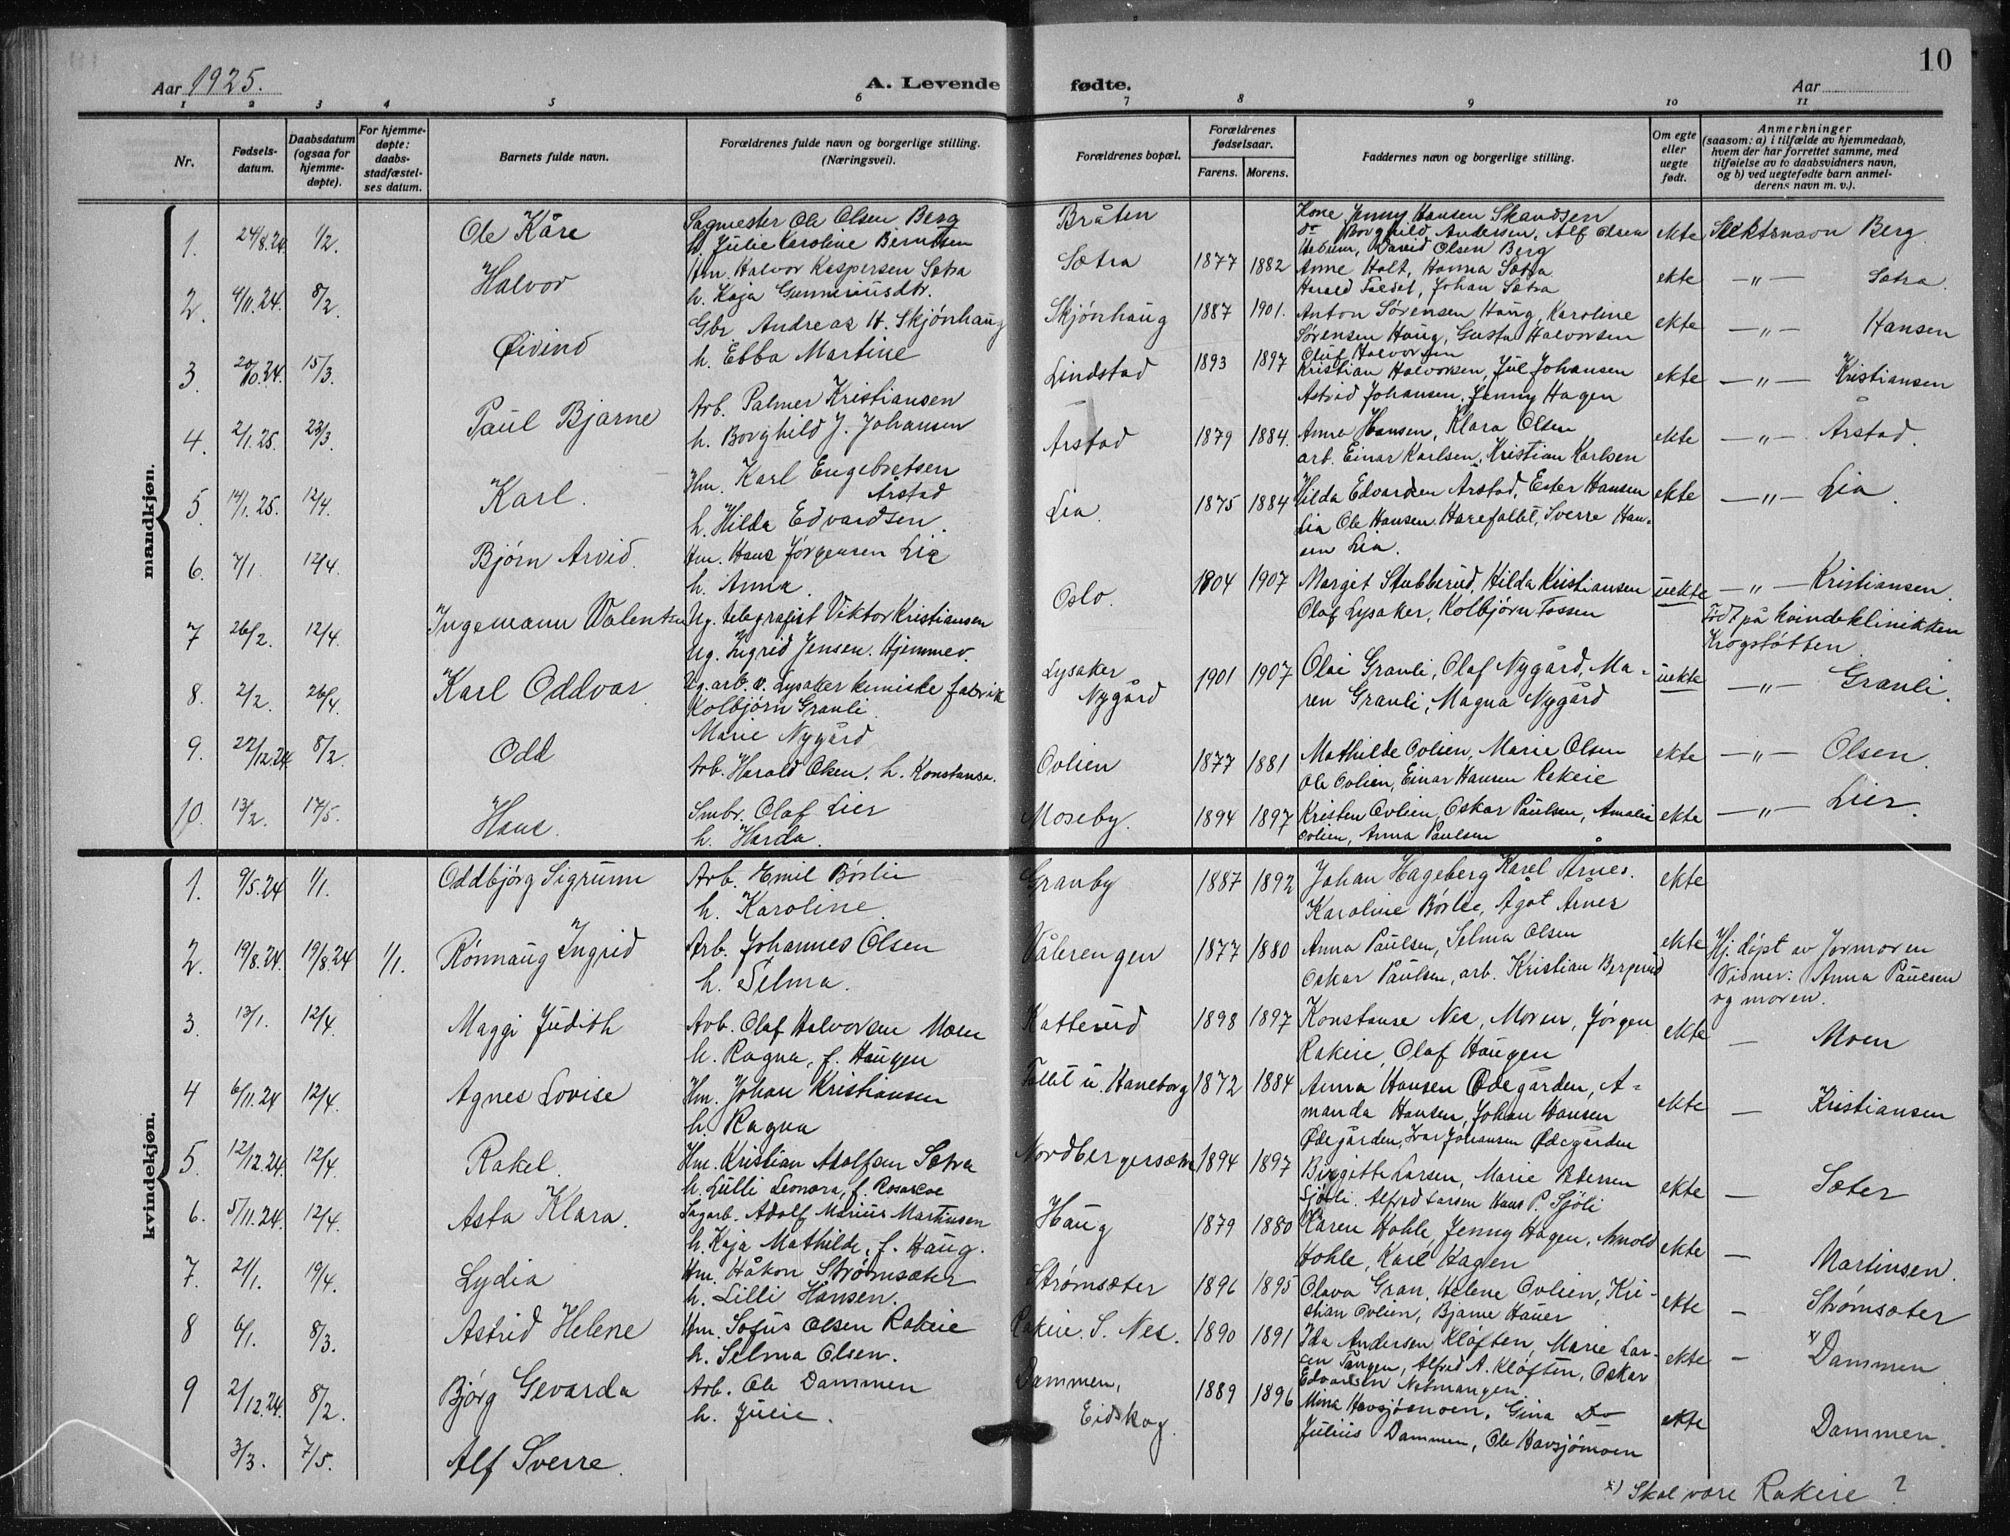 10
Aar 1925.
A. Levende fødte.
Aar
1 2 3 4 5 6 7 8 9 10 11
Nr.
Fødsels-
datum.
Daabsdatum
(ogsaa for
hjemme-
døpte).
For hjemme-
døpte:
daabs-
stadfæstel-
ses datum.
Barnets fulde navn.
Forældrenes fulde navn og borgerlige stilling.
(Næringsvei).
Forældrenes bopæl.
Forældrenes
fødselsaar.
Farens. Morens.
Faddernes navn og borgerlige stilling.
Om egte
eller
uegte
født.
Anmerkninger
(saasom: a) i tilfælde av hjemmedaab,
hvem der har forrettet samme, med
tilføielse av to daabsvidners navn,
og b) ved uegtefødte barn anmel-
derens navn m. v.).
mandkjøn.
1. 24/8.24 1/2. Ole Kåre
Sagmester Ole Olsen Berg
h. Julie Karoline Berntsen
Bråten
Kone Jenny Hansen Skandsen
do Borghild Andersen, Alf Olsen
David Olsen Berg
ekte Slektsnavn Berg.
2. 4/11.24. 8/2. Halvor
Hm. Halvor Kaspersen Sætra
h. Kaja Gunneriusdtr.
Sætra 1877 1882
Anne Holt, Hanna Sætra
Harald Toldet, Johan Sætra
ekte — „ — Sætra.
3. 20/10.24. 15/3. Øivind
Gbr Andreas H. Skjønhaug
h. Ebba Martine
Skjønhaug 1887 1901.
Anton Sørensen Haug, Karoline
Sørensen Haug, Gusta Halvorsen
Oluf Halvorsen
ekte — „ — Hansen
4. 2/1.25. 23/3. Paul Bjarne
Arb. Palmer Kristiansen
h. Borghild J. Johansen
Lindstad 1893 1897
Kristian Halvorsen, Jul Johansen
Astrid Johansen, Jenny Hagen
ekte — „ — Kristiansen
5. 14/1.25. 12/4. Karl.
Hm. Karl Engebretsen
Årstad
h. Hilda Edvardsen.
Årstad 1879 1884.
Anne Hansen, Klara Olsen
arb. Einar Karlsen, Kristian Karlsen
ekte — „ — Årstad.
6. 7/1. 12/4. Bjørn Arvid.
Hm. Hans Jørgensen Lia
h. Anna.
Lia. 1875 1884
Hilda Edvardsen Årstad, Ester Hansen
Lia Ole Hansen Harefallet, Sverre Han-
sen Lia.
ekte — „ — Lia.
7 26/2. 12/4. Ingemann Valentin
Ug. telegrafist Viktor Kristiansen
Ug. Ingrid Jensen. Hjemmev.
Oslo. 1904 1907
Margit Stubberud, Hilda Kristiansen
Olaf Lysaker, Kolbjørn Fossen
uekte — „ — Kristiansen.
Født på kvindeklinikken
Krogstøtten.
8. 2/2. 26/4. Karl Oddvar.
Ug. arb. v. Lysaker kemiske fabrik
Kolbjørn Granli.
Marie Nygård
Lysaker
Nygård
1901 1907
Olai Granli, Olaf Nygård, Ma-
ren Granli, Magna Nygård
uekte — „ — Granli.
9. 27/12.24 8/2. Odd
Arb. Harald Olsen. h. Konstanse.
Ovlien 1877 1881
Mathilde Ovlien, Marie Olsen
Ole Ovlien, Einar Hansen Rekeie
ekte — „ — Olsen.
10. 13/2. 17/5. Hans
Smbr. Olaf Lier
h. Harda.
Moseby. 1894 1897
Kristen Ovlien, Oskar Paulsen, Amalie
Ovlien, Anna Paulsen
ekte — „ — Lier.
kvindekjøn.
1. 9/5.24 1/1. Oddbjørg Sigrunn
Arb. Emil Børlie
h. Karoline.
Granby 1887 1892
Johan Hageberg Karel Årnes.
Karoline Børlie, Ågot Årnes
ekte
2. 19/8.24. 19/8.24 1/1. Rønnaug Ingrid
Arb. Johannes Olsen
h. Selma.
Vålerengen 1877 1880
Anna Paulsen, Selma Olsen
Oskar Paulsen, arb. Kristian Bergerud
ekte Hj. døpt av Jormoren
Vidner: Anna Paulsen
og moren.
3. 13/1. 12/4. Maggi Judith
Arb. Olaf Halvorsen Moen
h. Ragna, f. Haugen
Katterud 1898 1897
Konstanse Nes, Moren, Jørgen
Rakeie, Olaf Haugen
ekte — Moen
4 6/11.24 12/4. Agnes Lovise
Hm. Johan Kristiansen
h. Ragna
Fallet u. Haneborg 1872 1884
Anna Hansen Ødegården, A-
manda Hansen, Johan Hansen
Ødegården, Ivar Johansen Ødegården
ekte — Kristiansen
5. 12/12.24. 12/4. Rakel.
Hm. Kristian Adolfsen Sætra
h. Lulli Leonora, f.
Nordbergersætra 1894 1897
Birgitte Larsen, Marie Petersen
Sjøli. Alfred Larsen Hans P. Sjøli
ekte — Sæter
6. 5/11.24. 12/4. Asta Klara.
Sagarb. Adolf Marius Martinsen
h. Kaja Mathilde, f. Haug.
Haug 1879 1880
Karen Hohle, Jenny Hagen, Arnold
Hohle, Karl Hagen
ekte — Martinsen.
7. 2/1. 19/4. Lydia
Hm. Håkon Strømsæter
h. Lilli Hansen.
Strømsæter 1896 1895
Olava Gran, Helene Ovlien, Kri-
stian Ovlien, Bjarne Hauer
ekte — Strømsæter
8 6/1. 8/3. Astrid Helene
Hm. Sofus Olsen Rakeie
h. Selma Olsen.
Rakeie. S. Nes. 1890 1891
Ida Andersen Kløften, Marie Lar-
sen Tangen, Alfred A. Kløften, Oskar
Edvardsen Nesmangen
ekte — x) Dammen
9 2/12.24. 8/2. Bjørg Gevarda
Arb. Ole Dammen
h. Julie.
Dammen,
Eidskog
1889 1896
Mina Havsjømoen, Gina Do
Julius Dammen, Ole Havsjømoen
ekte Dammen.
3/3. 7/5. Alf Sverre.
x) Skal være Rakeie ?